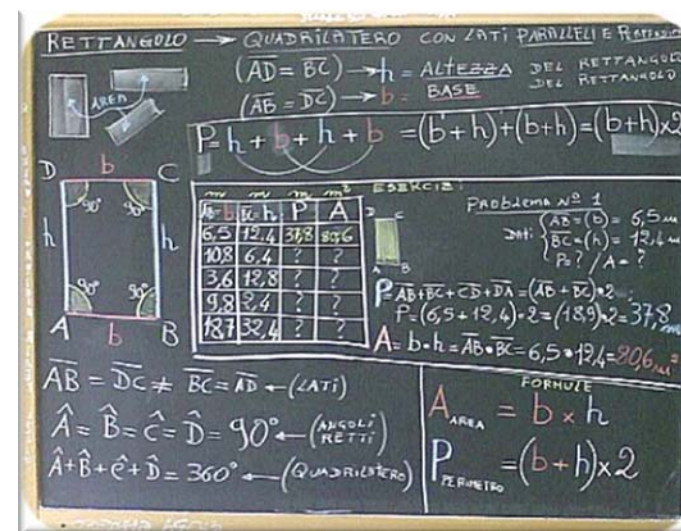 RETTANGOLO → QUADRILATERO CON LATI PARALLELI E
(A̅D̅ = B̅C̅) → h = ALTEZZA DEL RETTANGOLO
(A̅B̅ = D̅C̅) → b = BASE DEL RETTANGOLO
AREA
P = h + b + h + b = (b + h) + (b + h) = (b + h) x 2
D b C
90° 90°
h h
90° 90°
A b B
m m m m²
A̅B̅=b B̅C̅=h P A
6,5 12,4 37,8 80,6
10,8 6,4 ? ?
3,6 12,8 ? ?
9,8 2,4 ? ?
18,7 32,4 ? ?
ESERCIZI:
D C
A B
PROBLEMA Nº 1
DATI: A̅B̅ = (b) = 6,5 m
B̅C̅ = (h) = 12,4 m
P = ? / A = ?
P = A̅B̅ + B̅C̅ + C̅D̅ + D̅A̅ = (A̅B̅ + B̅C̅) • 2
P = (6,5 + 12,4) • 2 = (18,9) • 2 = 37,8 m
A = b • h = A̅B̅ • B̅C̅ = 6,5 • 12,4 = 80,6 m²
A̅B̅ = D̅C̅ ≠ B̅C̅ = A̅D̅ ← (LATI)
Â = B̂ = Ĉ = D̂ = 90° ← (ANGOLI RETTI)
Â + B̂ + Ĉ + D̂ = 360° ← (QUADRILATERO)
FORMULE
A AREA = b x h
P PERIMETRO = (b + h) x 2